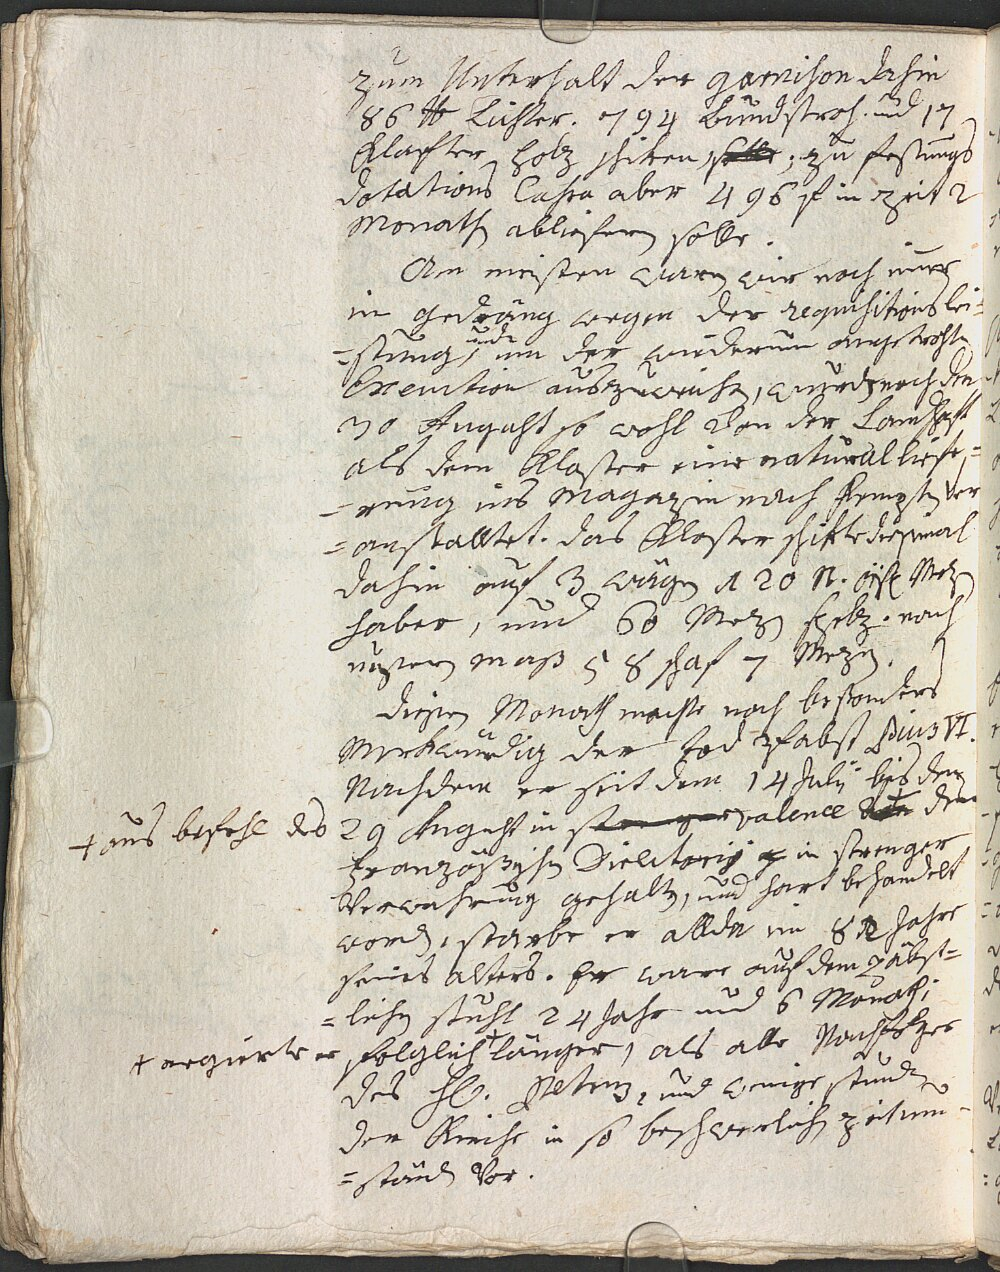 zum Unterhalt der garnison dahin
86 ℔ Lichter. 794 Bundstroh. und 17
Klafter Holz schiken, ; zu festungs
dotations Cassa aber 496 f in Zeit 2
Monath abliefern solle.
Am meisten waren wir noch immer
in gedräng wegen der requisitions lei-
=stung, und um der wiederum angetrohten
Execution auszuweichen, wurde noch den
30 August so wohl von der Landschaft
als dem Kloster eine natural liefe=
=rung ins Magazin nach Kempten ver
=anstalltet. das Kloster schikte diesmal
dahin auf 3 wägen 120 Mezen
haber, und 60 Mezen . nach
unsern maß 58 schaf 7 Mezen.
diesen Monath machte noch besonders
Merkwürdig der tod Pabst Pius VI.
Nachdem er seit dem 14 July bis den
+ aus befehl des
29 August in valence den
französischen Directorij in strenger
Verwahrung gehalten, und hart behandelt
worden, starbe er allda im 82 Jahre
seines alters. Er ware auf dem päbst=
=lichen stuhl 24 Jahr und 6 Monath;
+ regierte er
folglich + länger, als alle Nachfolger
des Hl. Petrus, und
der Kirche in so beschwerlichen zeitum-
=ständen vor.